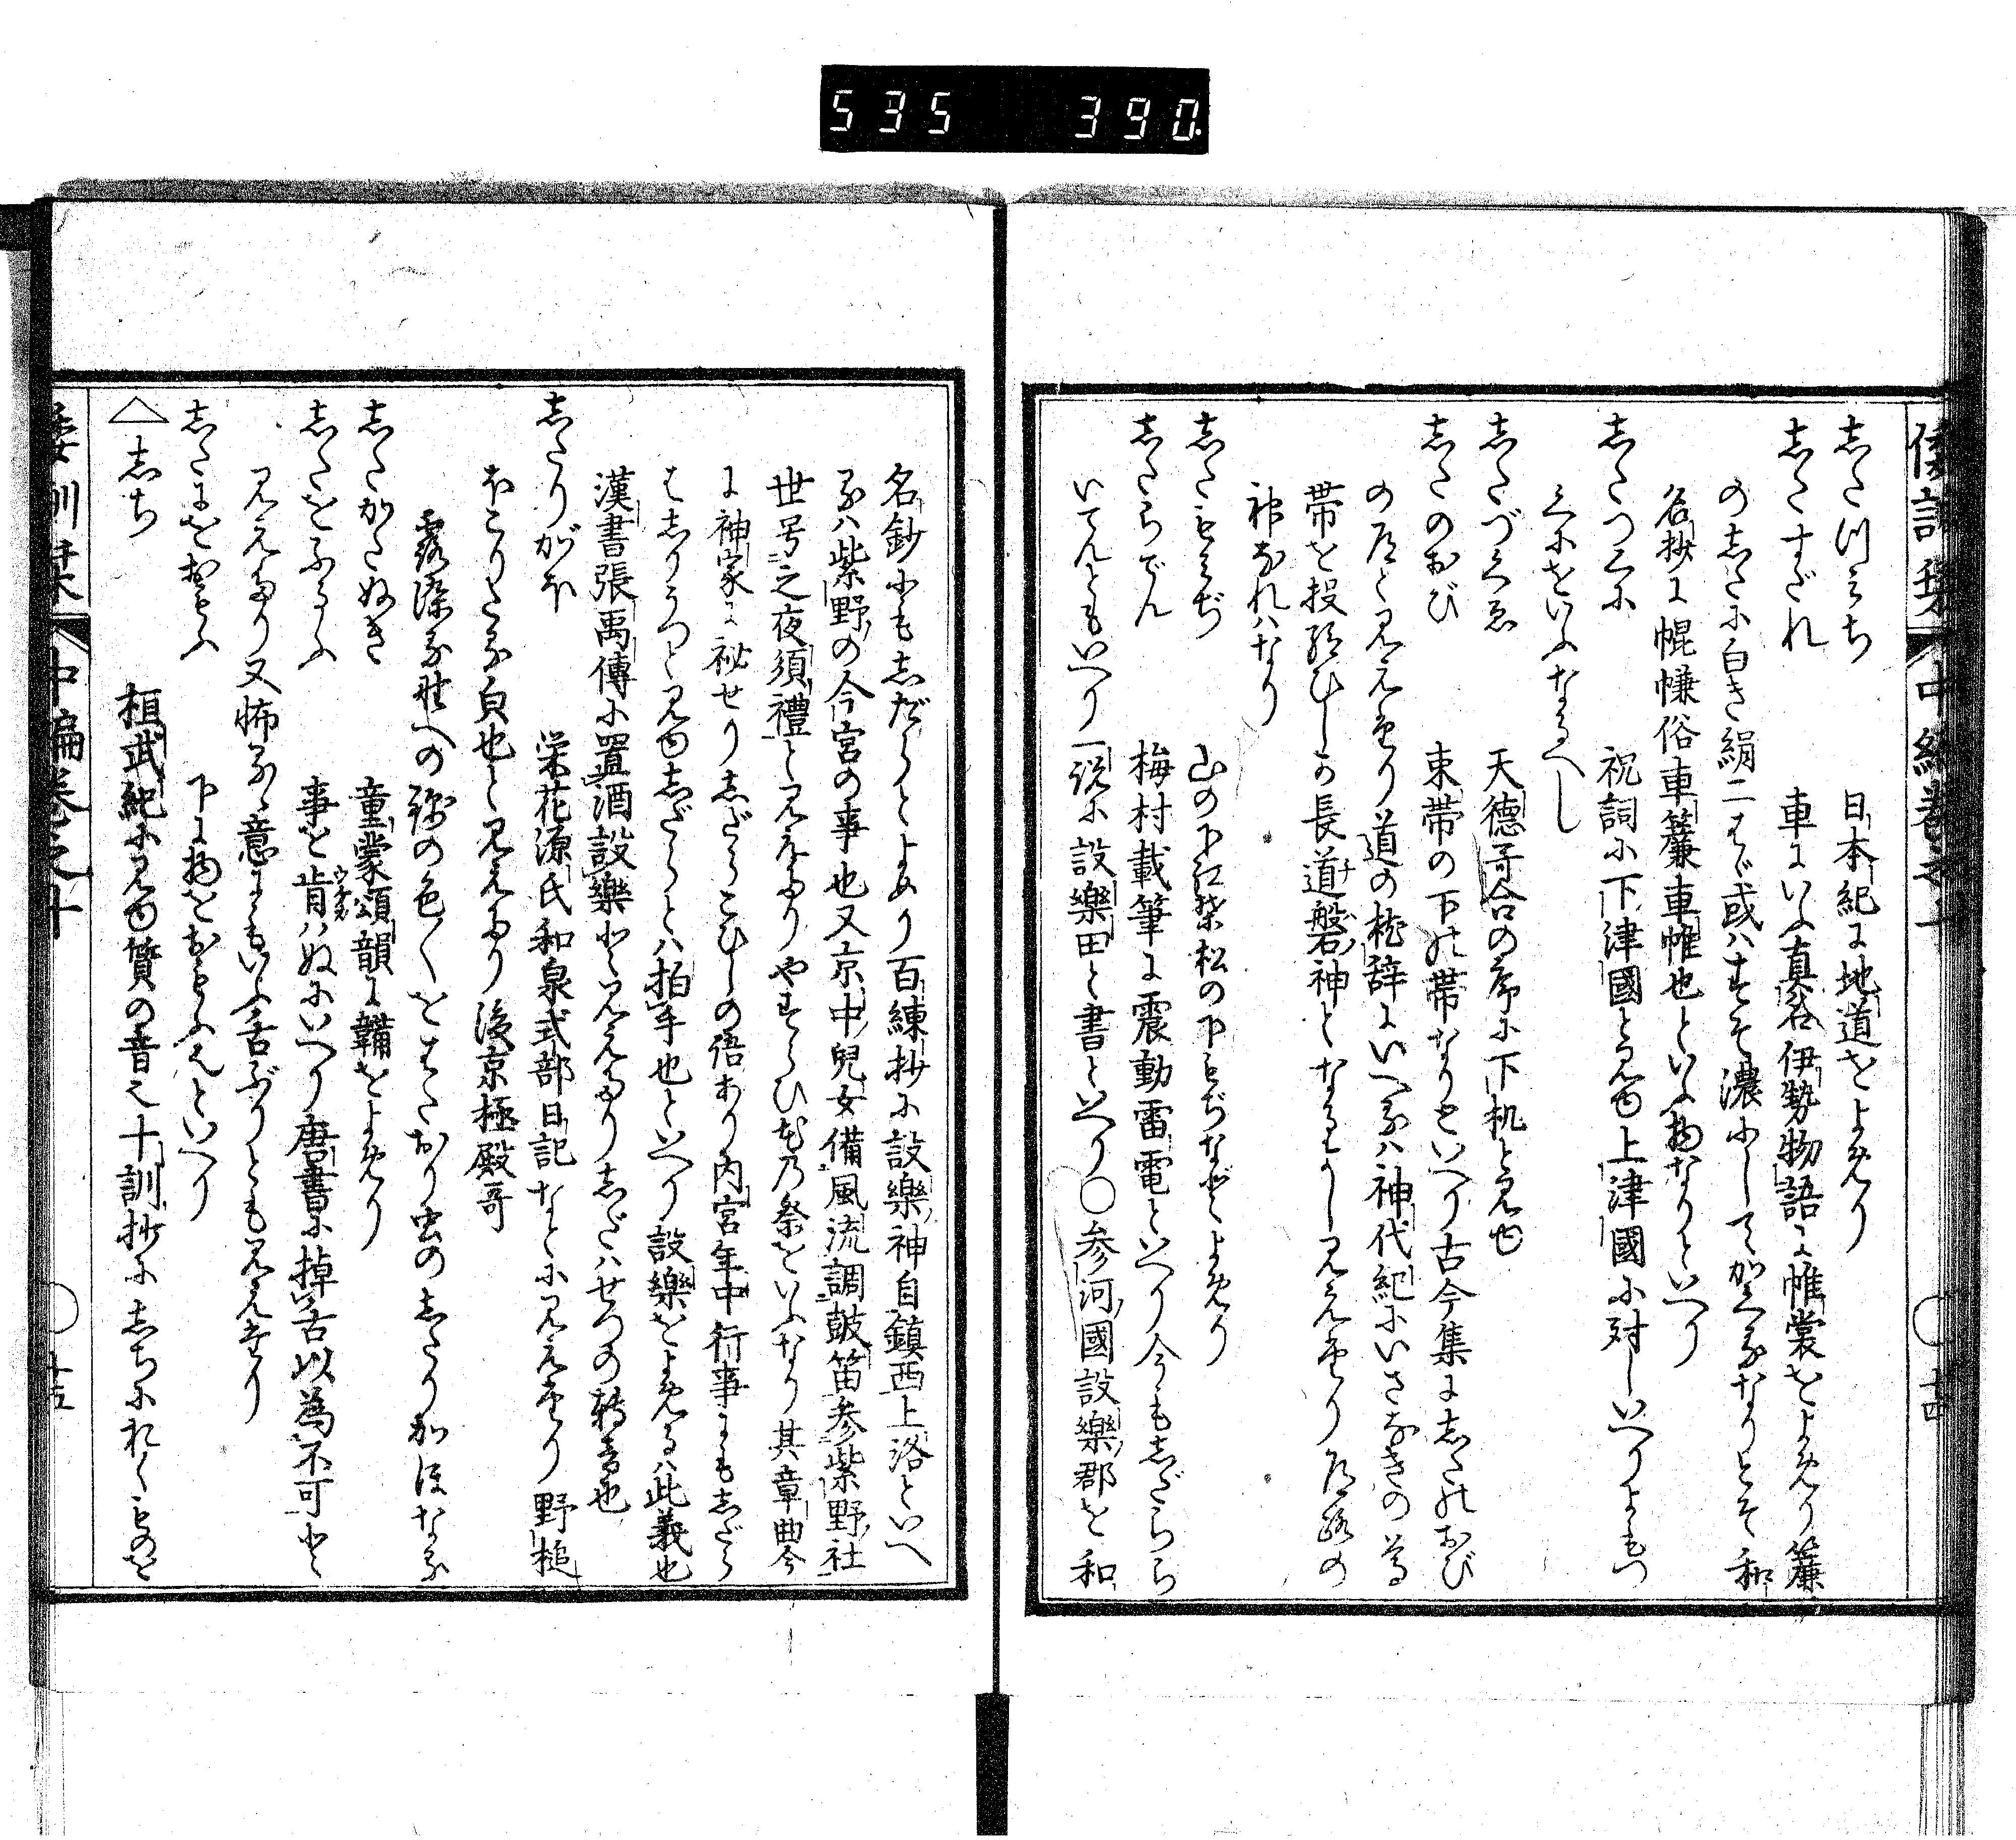 535 390.
倭訓栞 中編巻之十 ○ 十四
志たつみち 日本紀に地道をよめり
志たすだれ 車にいふ真名伊勢物語に帷裳をよめり簾
の志たに白き絹二はゞ或ハすそ濃にしてかくるなりとそ和
名抄に幌㡘俗車簾車帷也といふ物なりといへり
志たつくに 祝詞に下津國と見ゆ上津國に対しいへりよもつ
くにをいふなるへし
志たづくゑ 天德哥合の序に下机と見ゆ
志たのおび 束帯の下の帯なりといへり古今集に志たのおび
の道と見えたり道の枕辞にいへるハ神代紀にいさなきの尊
帯を投給ひしか長道磐神となるよし見えたり道路の
神なれハなり
志たもみぢ 山の下紅葉松の下もみぢなどよめり
志たらでん 梅村載筆に震動雷電といへり今も志だらら
いてんともいへり一説に設樂田と書といへり○参河國設樂郡を和
名鈔にも志だらとよめり百練抄に設樂神自鎮西上洛といへ
るハ紫野の今宮の事也又京中兒女備風流調鼓笛参紫野社
世号之夜須禮と見えたりやすらひ花の祭をいふなり其章曲今
に神家に祕せり志だらこひしの語あり内宮年中行事にも志だら
は志りうつと見ゆ志だらとハ拍手也といへり設樂をよめるハ此義也
漢書張禹傳に置酒設樂と見えたり志だハせつの轉音也
志たりがほ 栄花源氏和泉式部日記なとに見えたり野槌
ほこりたる皃也と見えたり後京極殿哥
露染る野への錦の色〱をはたおり虫の志たりかほなる
志たがたぬき 童蒙頌韻に鞴をよめり
志たをふるふ 事を肯ハぬにいへり唐書に掉舌以為不可と
見えたり又怖るゝ意にもいふ舌ぶりとも見えたり
志たにをおもふ 下に物をおもふ也といへり
△志ち 桓武紀に見ゆ質の音也十訓抄に志ちにおくものを
倭訓栞 中編巻之十 ○ 十五